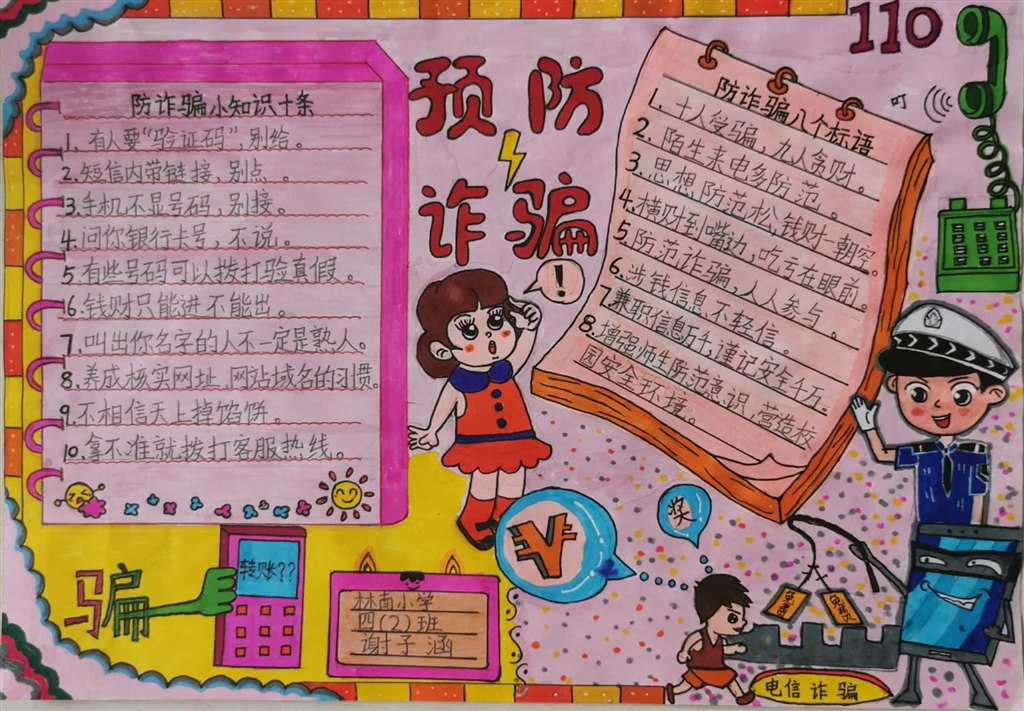 预防
诈骗
110
叮
防诈骗小知识十条
1、有人要“验证码”,别给。
2.短信内带链接,别点。
3.手机不显号码,别接。
4.问你银行卡号,不说。
5.有些号码可以拨打验真假。
6.钱财只能进不能出。
7.叫出你名字的人不一定是熟人。
8.养成核实网址,网站域名的习惯。
9.不相信天上掉馅饼。
10.拿不准就拨打客服热线。
防诈骗八个标语
1、十人受骗,九人贪财。
2、陌生来电多防范。
3、思想防范松,钱财一朝空。
4、横财到嘴边,吃亏在眼前。
5、防范诈骗,人人参与。
6、涉钱信息不轻信。
7、兼职信息万千,谨记安全千万。
8、增强师生防范意识,营造校
园安全环境。
!
奖
骗
转账??
林南小学
四(2)班
谢子涵
免费
电信诈骗